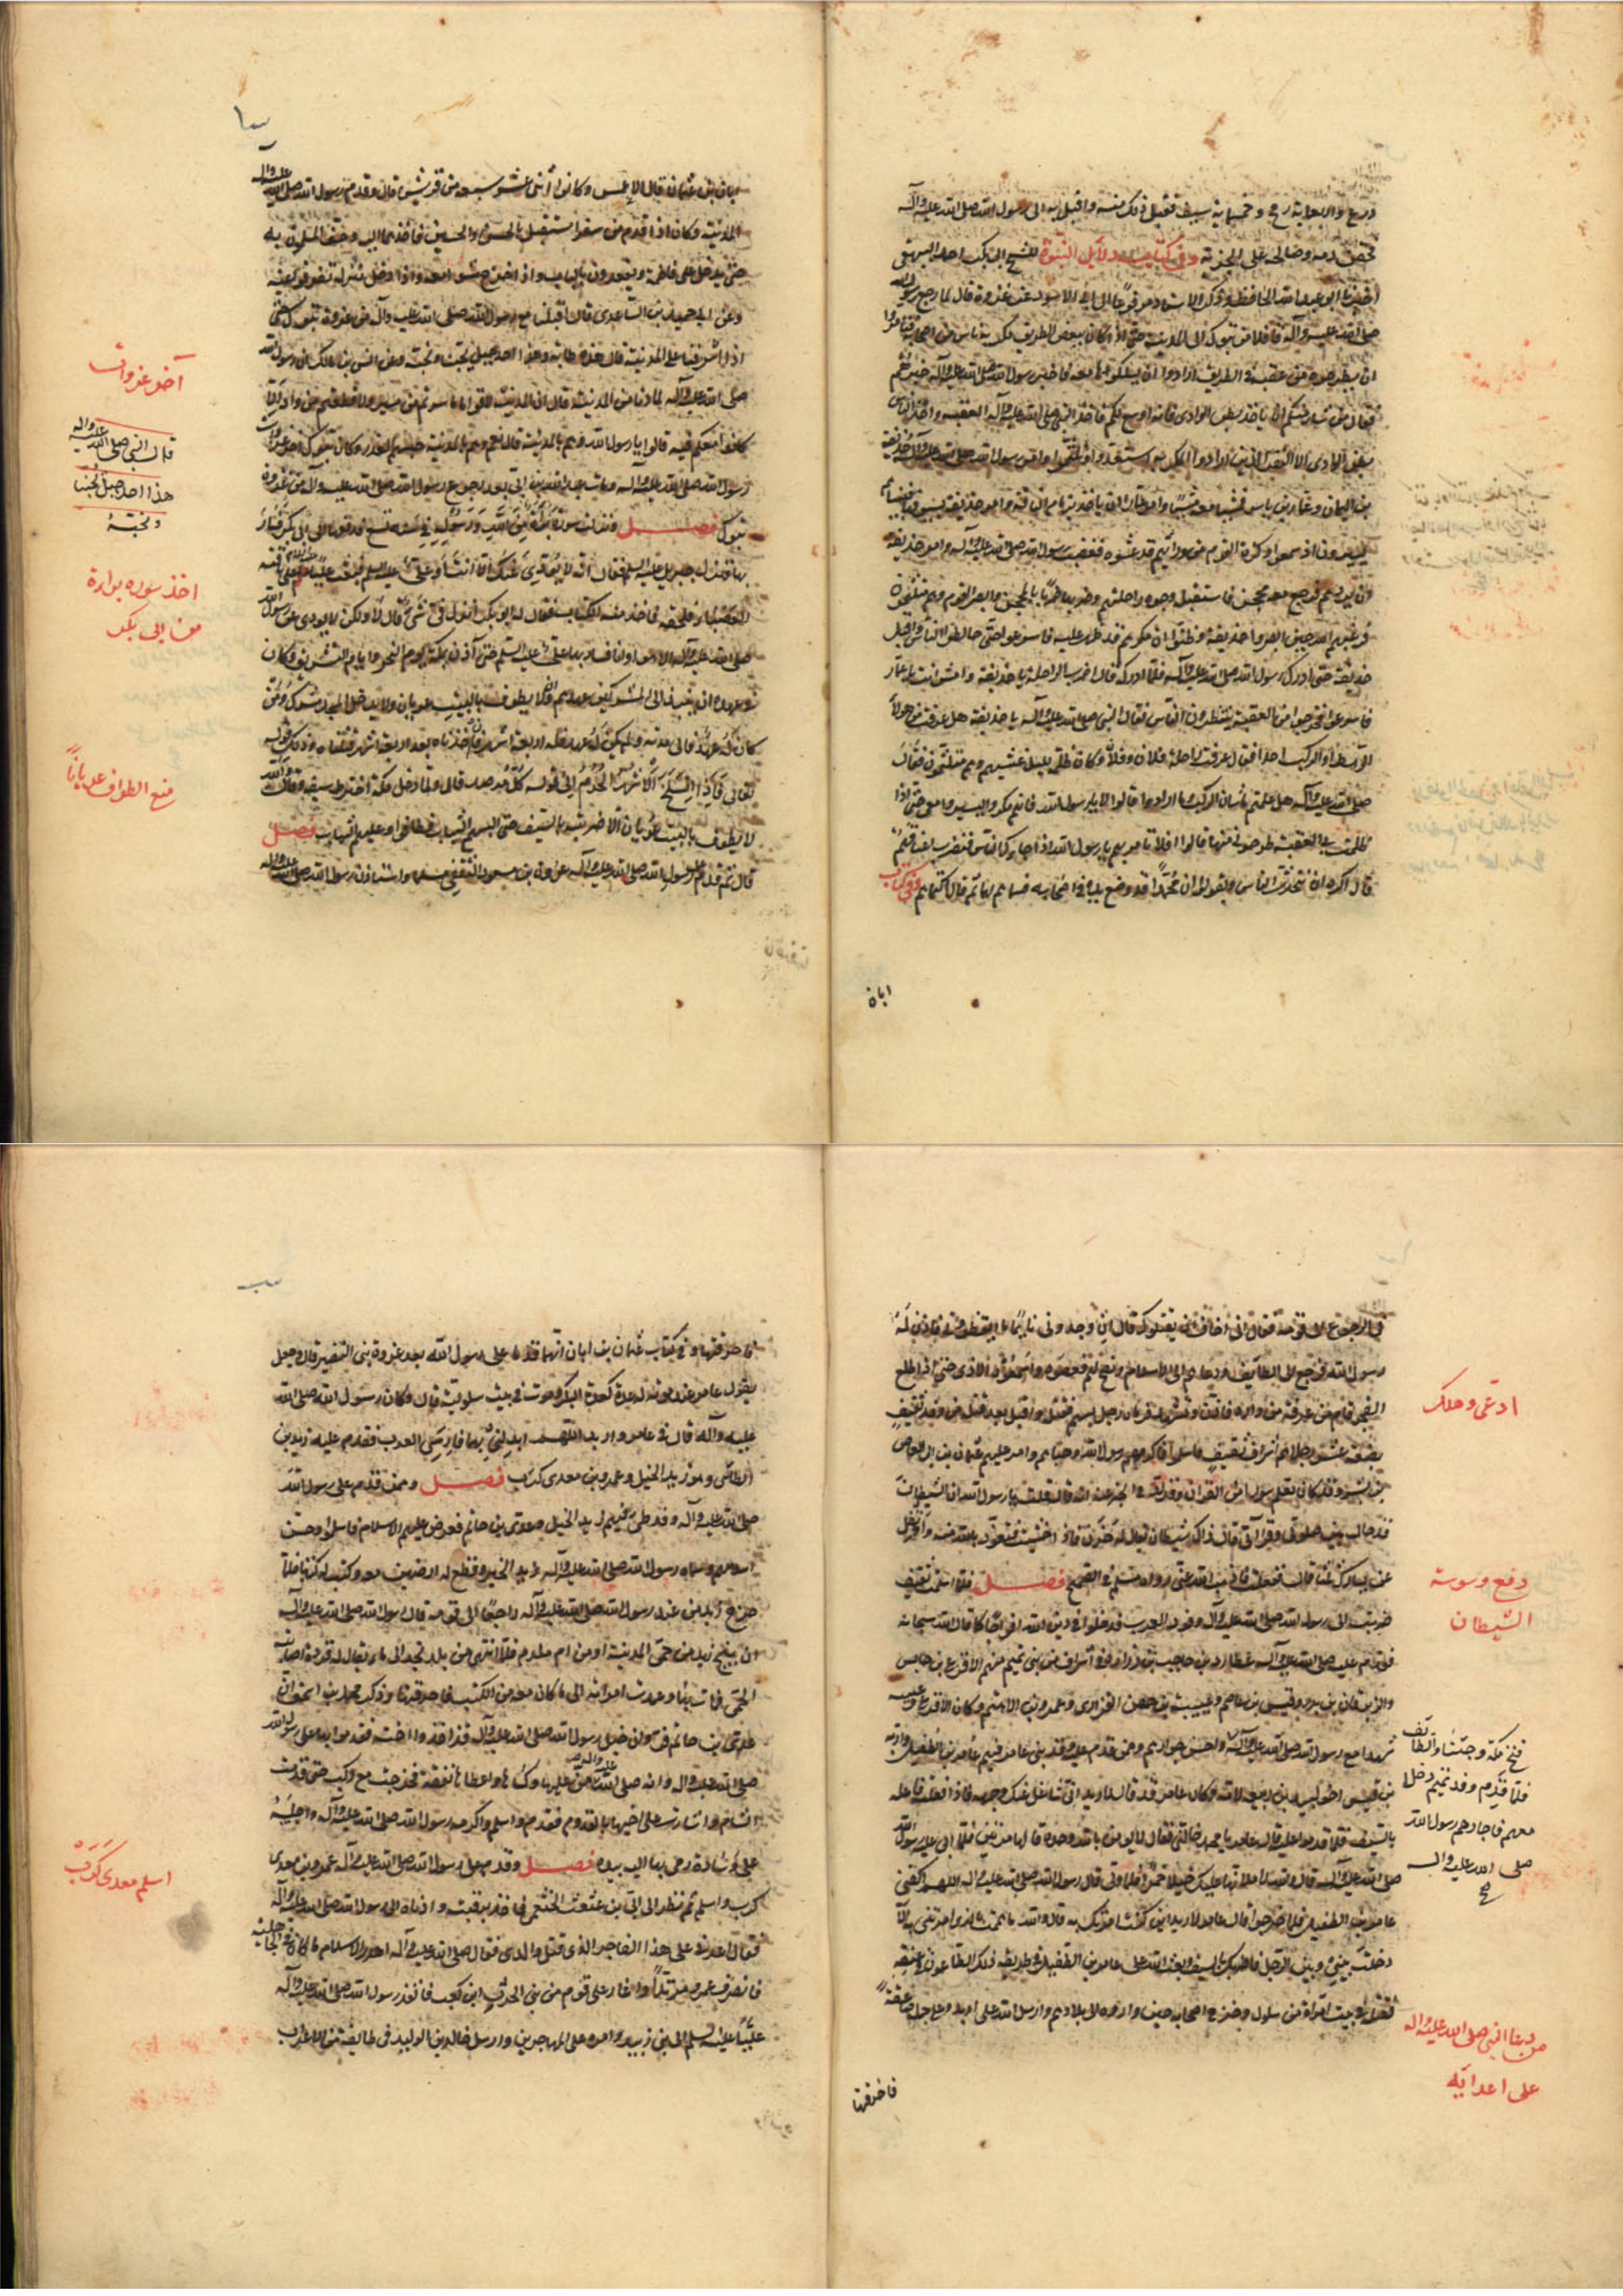 درع واربعماية رمح وخمسماية سيف فقبل ذلك منه واقبل به الى رسول الله صلى الله عليه وآله
فحقن دمه وصالحه على الجزية وفي كتاب دلايل النبوة للشيخ ابي بكر احمد البيهقي
اخبرنا ابو عبد الله الحافظ وذكر الاسناد مرفوعا الى ابي الاسود عن عروة قال لما رجع رسول الله
صلى الله عليه وآله قافلا من تبوك الى المدينة حتى اذا كان ببعض الطريق مكر به ناس من اصحابه فتآمروا
ان يطرحوه من عقبة في الطريق ارادوا ان يسلكوها معه فاخبر رسول الله صلى الله عليه وآله خبرهم
فقال من شاء منكم ان ياخذ بطن الوادي فانه اوسع لكم فاخذ النبي صلى الله عليه وآله العقبة واخذ الناس
بطن الوادي الا النفر الذين ارادوا المكر به استعدوا وتلثموا وامر رسول الله صلى الله عليه وآله حذيفة
بن اليمان وعمار بن ياسر فمشيا معه مشيا وامر عمارا ان ياخذ بزمام الناقة وامر حذيفة بسوقها فبيناهم
يسيرون اذ سمعوا وكزة القوم من ورائهم قد غشوه فغضب رسول الله صلى الله عليه وآله وامر حذيفة
ان يردهم فرجع معه محجن فاستقبل وجوه رواحلهم وضربها ضربا بالمحجن وابصر القوم وهم متلثمون
فرعبهم الله حين ابصروا حذيفة وظنوا ان مكرهم قد ظهر عليه فاسرعوا حتى خالطوا الناس واقبل
حذيفة حتى ادرك رسول الله صلى الله عليه وآله فلما ادركه قال اضرب الراحلة يا حذيفة وامش انت يا عمار
فاسرعوا فخرجوا من العقبة ينتظرون الناس فقال النبي صلى الله عليه وآله يا حذيفة هل عرفت من هولاء
الرهط او الركب احدا فقال عرفت راحلة فلان وفلان وكان ظلمة الليل غشيتهم وهم متلثمون فقال
صلى الله عليه وآله هل علمتم ما شان الركب وما ارادوا قالوا لا يا رسول الله قال فانهم مكروا ليسيروا معي حتى اذا
اظلمت بي العقبة طرحوني منها قالوا افلا تامر بهم يا رسول الله اذا جاءوك الناس فنضرب اعناقهم
قال اكره ان تتحدث الناس ويقولوا ان محمدا قد وضع يده في اصحابه فسماهم لهما ثم قال اكتماهم وفي كتاب
ابان
سا
ابان بن عثمان قال الاعمش وكانوا اثنى عشر سبعة من قريش قال وقدم رسول الله صلى الله عليه وآله
المدينة وكان اذا قدم من سفر استقبل بالحسن والحسين فاخذهما اليه وحف المسلمون به
حتى يدخل على فاطمة ويقعدون بالباب واذا خرج مشوا معه واذا دخل منزله تفرقوا عنه
وعن ابي حميد بن الساعدي قال اقبلنا مع رسول الله صلى الله عليه وآله من غزوة تبوك حتى
اذا اشرفنا على المدينة قال هذه طابة وهذا احد جبل يحبنا ونحبه وعن انس بن مالك ان رسول الله
صلى الله عليه وآله لما دنا من المدينة قال ان بالمدينة لاقواما ما سرتم من مسير ولا قطعتم من واد الا
كانوا معكم فيه قالوا يا رسول الله وهم بالمدينة قال نعم وهم بالمدينة حبسهم العذر وكان تبوك اخر غزوات
رسول الله صلى الله عليه وآله ومات عبد الله بن ابي بعد رجوع رسول الله صلى الله عليه وآله من غزوة
تبوك فصل ونزلت سورة براءة من الله ورسوله في سنة تسع فدفعها الى ابي بكر فسار
بها فنزل جبريل عليه السلم فقال انه لا يؤدي عنك الا انت او علي فبعث عليا عليه السلام على ناقته
العضباء فلحقه فاخذ منه الكتاب فقال له ابو بكر انزل في شئ قال لا ولكن لا يودي عن رسول الله
صلى الله عليه وآله الا هو او انا فسار بها علي عليه السلم حتى اذن بمكة يوم النحر وايام التشريق وكان
في عهده ان ينبذ الى المشركين عهدهم وان لا يطوف بالبيت عريان ولا يدخل المسجد مشرك ومن
كان له عهد فالى مدته ومن لم يكن له عهد فله اربعة اشهر فان اخذناه بعد اربعة اشهر قتلناه وذلك قوله
تعالى فاذا انسلخ الاشهر الحرم الى قوله كل مرصد قال ولما دخل مكة اخترط سيفه وقال والله
لا يطوف بالبيت عريان الا ضربته بالسيف حتى البسهم الثياب فطافوا وعليهم الثياب فصل
قال ثم قدم على رسول الله صلى الله عليه وآله عروة بن مسعود الثقفي مسلما واستاذن رسول الله صلى الله عليه وآله
آخر غزوات
قال النبي صلى الله عليه واله
هذا احد جبل يحبنا
ونحبه
اخذ سوره براءة
من ابى بكر
منع الطواف عريانا
في الرجوع الى قومه فقال اني اخاف ان يقتلوك قال ان وجدوني نايما ما ايقظوني فاذن له
رسول الله فرجع الى الطايف ودعاهم الى الاسلام ونصح لهم فعصوه واسمعوه الاذى حتى اذا طلع
الفجر قام في غرفة من داره فاذن وتشهد فرماه رجل بسهم فقتله واقبل بعد قتله من وفد ثقيف
بضعة عشر رجلا هم اشراف ثقيف فاسلموا فاكرمهم رسول الله وحباهم وامر عليهم عثمان بن ابي العاص
بن بشر وقد كان تعلم سورا من القران وقد روي في الخبر عنه انه قال قلت يا رسول الله ان الشيطان
قد حال بين صلوتي وقراتي قال ذاك شيطان يقال له خنزب فاذا خشيت فتعوذ بالله منه واتفل
عن يسارك ثلثا قال ففعلت فاذهب الله عني رواه مسلم في الصحيح فصل فلما اسلمت ثقيف
ضربت الى رسول الله صلى الله عليه وآله وفود العرب فدخلوا في دين الله افواجا كما قال الله سبحانه
فقدم عليه صلى الله عليه وآله عطارد بن حاجب بن زرارة في اشراف من بني تميم منهم الاقرع بن حابس
والزبرقان بن بدر وقيس بن عاصم وعيينة بن حصن الفزاري وعمرو بن الاهتم وكان الاقرع وعيينة
شهدا مع رسول الله صلى الله عليه وآله واحسن جوارهم وممن قدم عليه وفد بني عامر فيهم عامر بن الطفيل واربد
بن قيس اخو لبيد بن ربيعة لامه وكان عامر قد قال لاربد اني شاغل عنك وجهه فاذا فعلت فاعله
بالسيف فلما قدموا عليه قال عامر يا محمد خالني فقال لا حتى تومن بالله وحده قالها مرتين فلما ابى عليه رسول الله
صلى الله عليه وآله قال والله لاملانها عليك خيلا حمرا فلما ولى قال رسول الله صلى الله عليه وآله اللهم اكفني
عامر بن الطفيل فلما خرجوا قال عامر لاربد اين كنت امرتك به قال والله ما هممت بالذي امرتني به الا
دخلت بيني وبين الرجل فاضربك بالسيف وبعث الله على عامر بن الطفيل في طريقه ذلك الطاعون في عنقه
فقتله في بيت امراة من سلول وخرج اصحابه حين واروه الى بلادهم وارسل الله على اربد وعلى جمله صاعقة
فاحرقتهما
ادعى وهلك
دفع وسوسة
الشيطان
فتح مكة وحنينا والطائف
فلما قدم وفد تميم دخلا
معهم فاجارهم رسول الله
صلى الله عليه واله
صح
من دعا النبي صلى الله عليه واله
على اعدايه
سب
فاحرقتهما وفي كتاب عثمان بن ابان انهما قدما على رسول الله بعد غزوة بني النضير قال وجعل
يقول عامر عند موته اغدة كغدة البكر وموت في بيت سلولية قال وكان رسول الله صلى الله
عليه وآله قال في عامر واربد اللهم ابدلني بهما فارسي العرب فقدم عليه زيد بن
الطائي وهو زيد الخيل وعمرو بن معدي كرب فصل وممن قدم على رسول الله
صلى الله عليه وآله وفد طي فيهم زيد الخيل وعدي بن حاتم فعرض عليهم الاسلام فاسلموا وحسن
اسلامهم وسماه رسول الله صلى الله عليه وآله زيد الخير وقطع له ارضين معه وكتب له كتابا فلما
خرج زيد من عند رسول الله صلى الله عليه وآله راجعا الى قومه قال رسول الله صلى الله عليه وآله
ان ينج زيد من حمى المدينة او من ام ملدم فلما انتهى من بلد نجد الى ماء يقال له قردة اصابته
الحمى فمات بها وعمدت امراته الى ما كان معه من الكتب فاحرقتها وذكر محمد بن اسحق ان
عدي بن حاتم فر وان خيل رسول الله صلى الله عليه وآله قد اخذوا اخته فقدموا بها على رسول الله
صلى الله عليه واله وانه صلى الله عليه واله من عليها وكساها واعطاها نفقة فخرجت مع ركب حتى قدمت
الشام واشارت على اخيها بالقدوم فقدم واسلم واكرمه رسول الله صلى الله عليه وآله واجلسه
على وسادة رمى بها اليه بيده فصل وقدم على رسول الله صلى الله عليه وآله عمرو بن معدي
كرب واسلم ثم نظر الى ابي بن عثعث الخثعمي فاخذ برقبته وادناه الى رسول الله صلى الله عليه وآله
فقال اعدني على هذا الفاجر الذي قتل والدي فقال صلى الله عليه وآله اهدر الاسلام ما كان في الجاهلية
فانصرف عمرو مرتدا واغار على قوم من بني الحرث ابن كعب فانفذ رسول الله صلى الله عليه وآله
عليا عليه السلم الى بني زبيد وامره على المهاجرين وارسل خالد بن الوليد في طايفة من الاعراب
اسلم معدى كرب